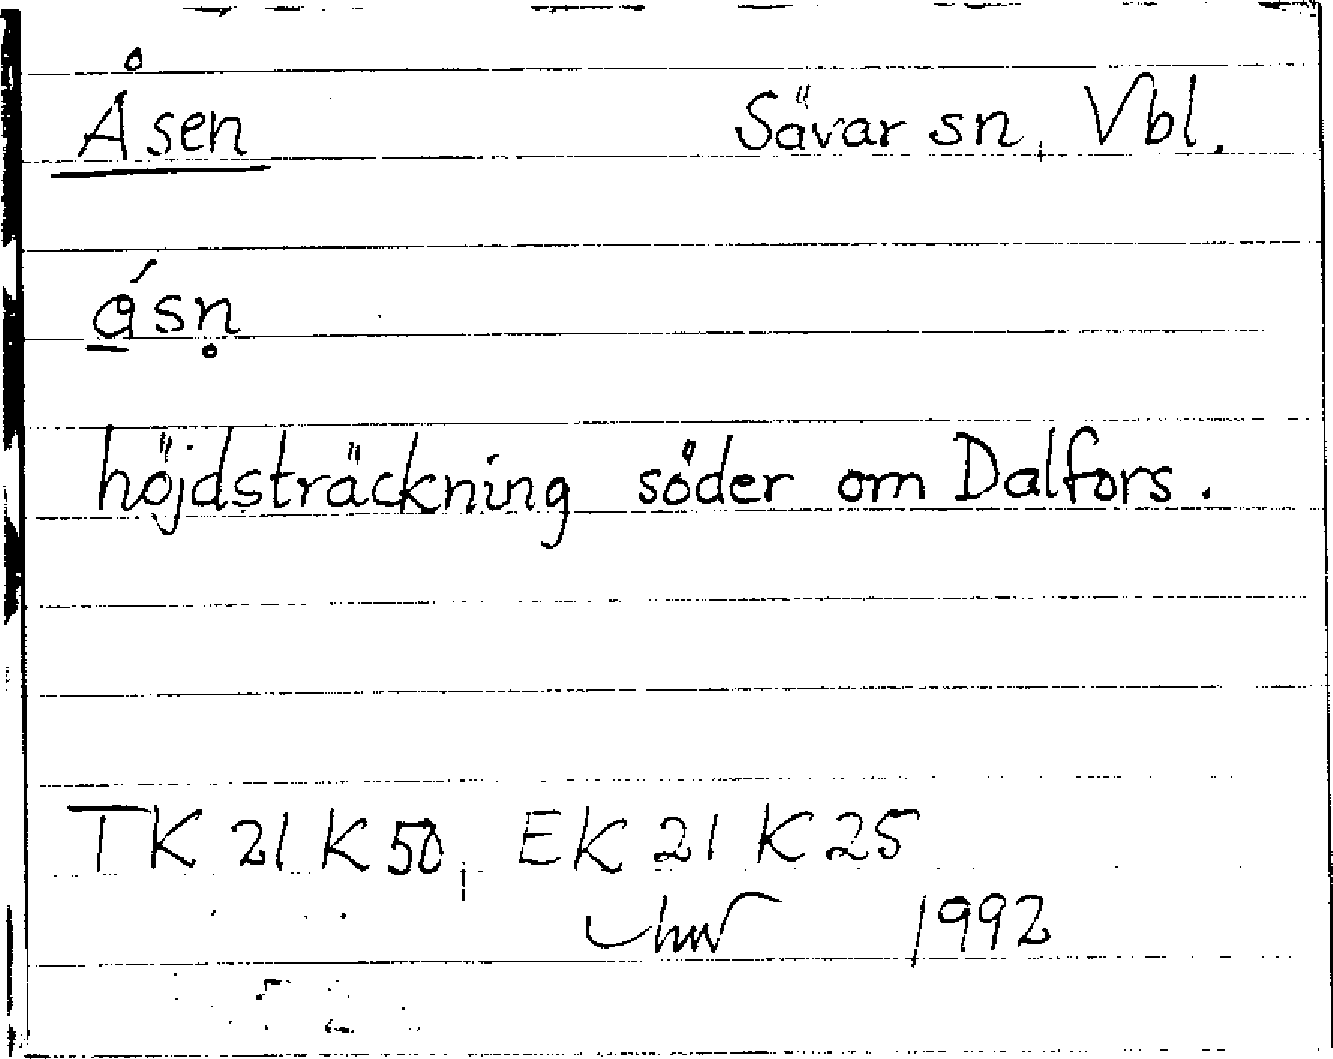 Åsen Sävar sn, Vbl.
ásn̥
höjdsträckning söder om Dalfors.
TK 21 K 50, EK 21 K 25
1992